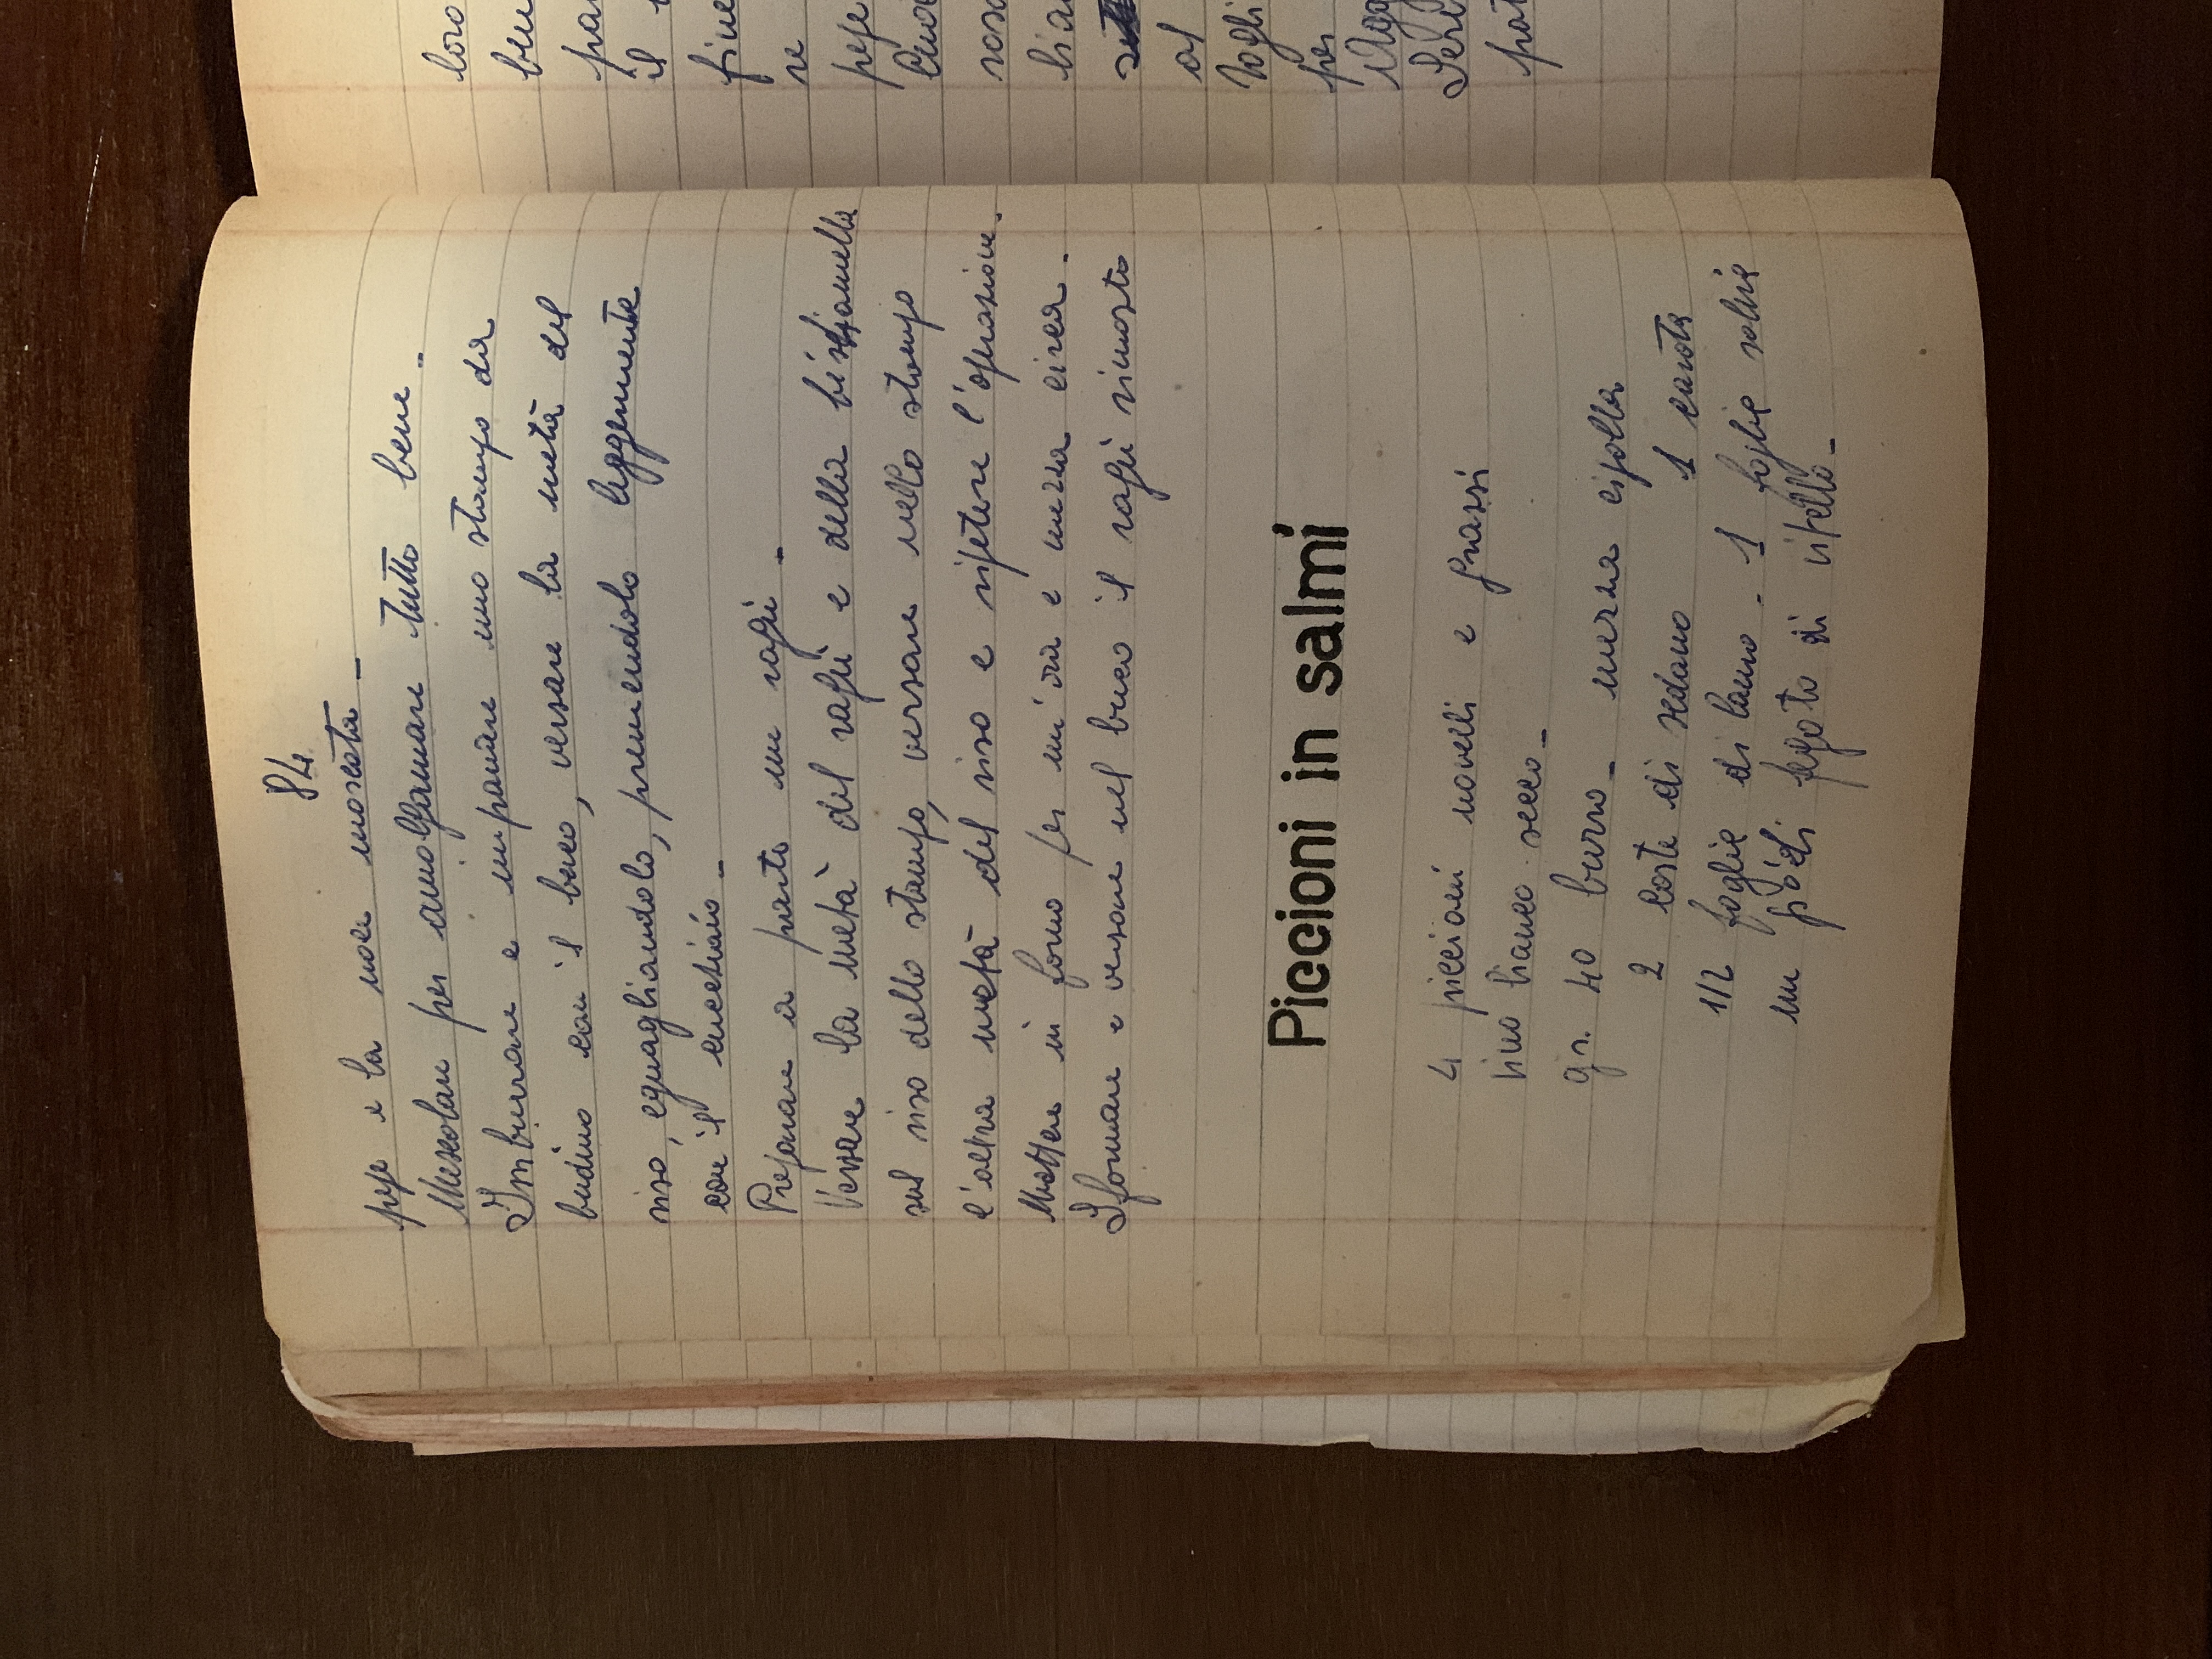 84
pepe e la noce moscata -
Mescolare per amalgamare tutto bene -
Imburrare e impanare uno stampo da
budino con il buco, versare la metà del
riso, eguagliandolo, premendolo leggermente
con il cucchiaio -
Preparare a parte un ragù -
Versare la metà del ragù e della bischiamella
sul riso dello stampo, versare nello stampo
l'altra metà del riso e ripetere l'operazione.
Mettere in forno per un'ora e mezza circa -
Sformare e versare nel buco il ragù rimasto
Piccioni in salmí
4 piccioni novelli e grassi
vino bianco secco -
gr. 40 burro - mezza cipolla
2 coste di sedano 1 carota
1/2 foglie di lauro - 1 foglie salvie
un pò di fegato di vitello -
loro
il
fine
re
pepe
al
per